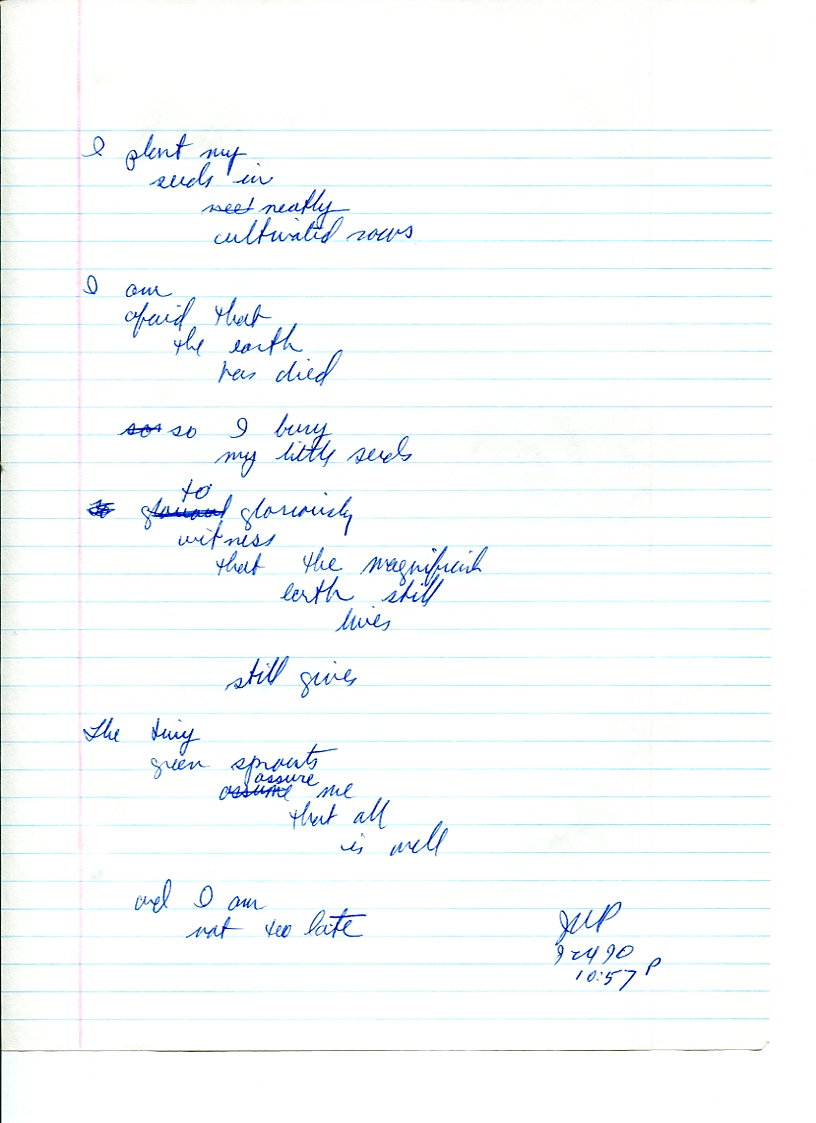 I plant my
seeds in
neet neatly
cultivated rows
I am
afraid that
the earth
has died
so so I bury
my little seeds
to
gloriously
witness
that the magnificent
earth still
lives
still gives
The tiny
green sprouts
assure
assume me
that all
is well
and I am
not too late
10:57 P